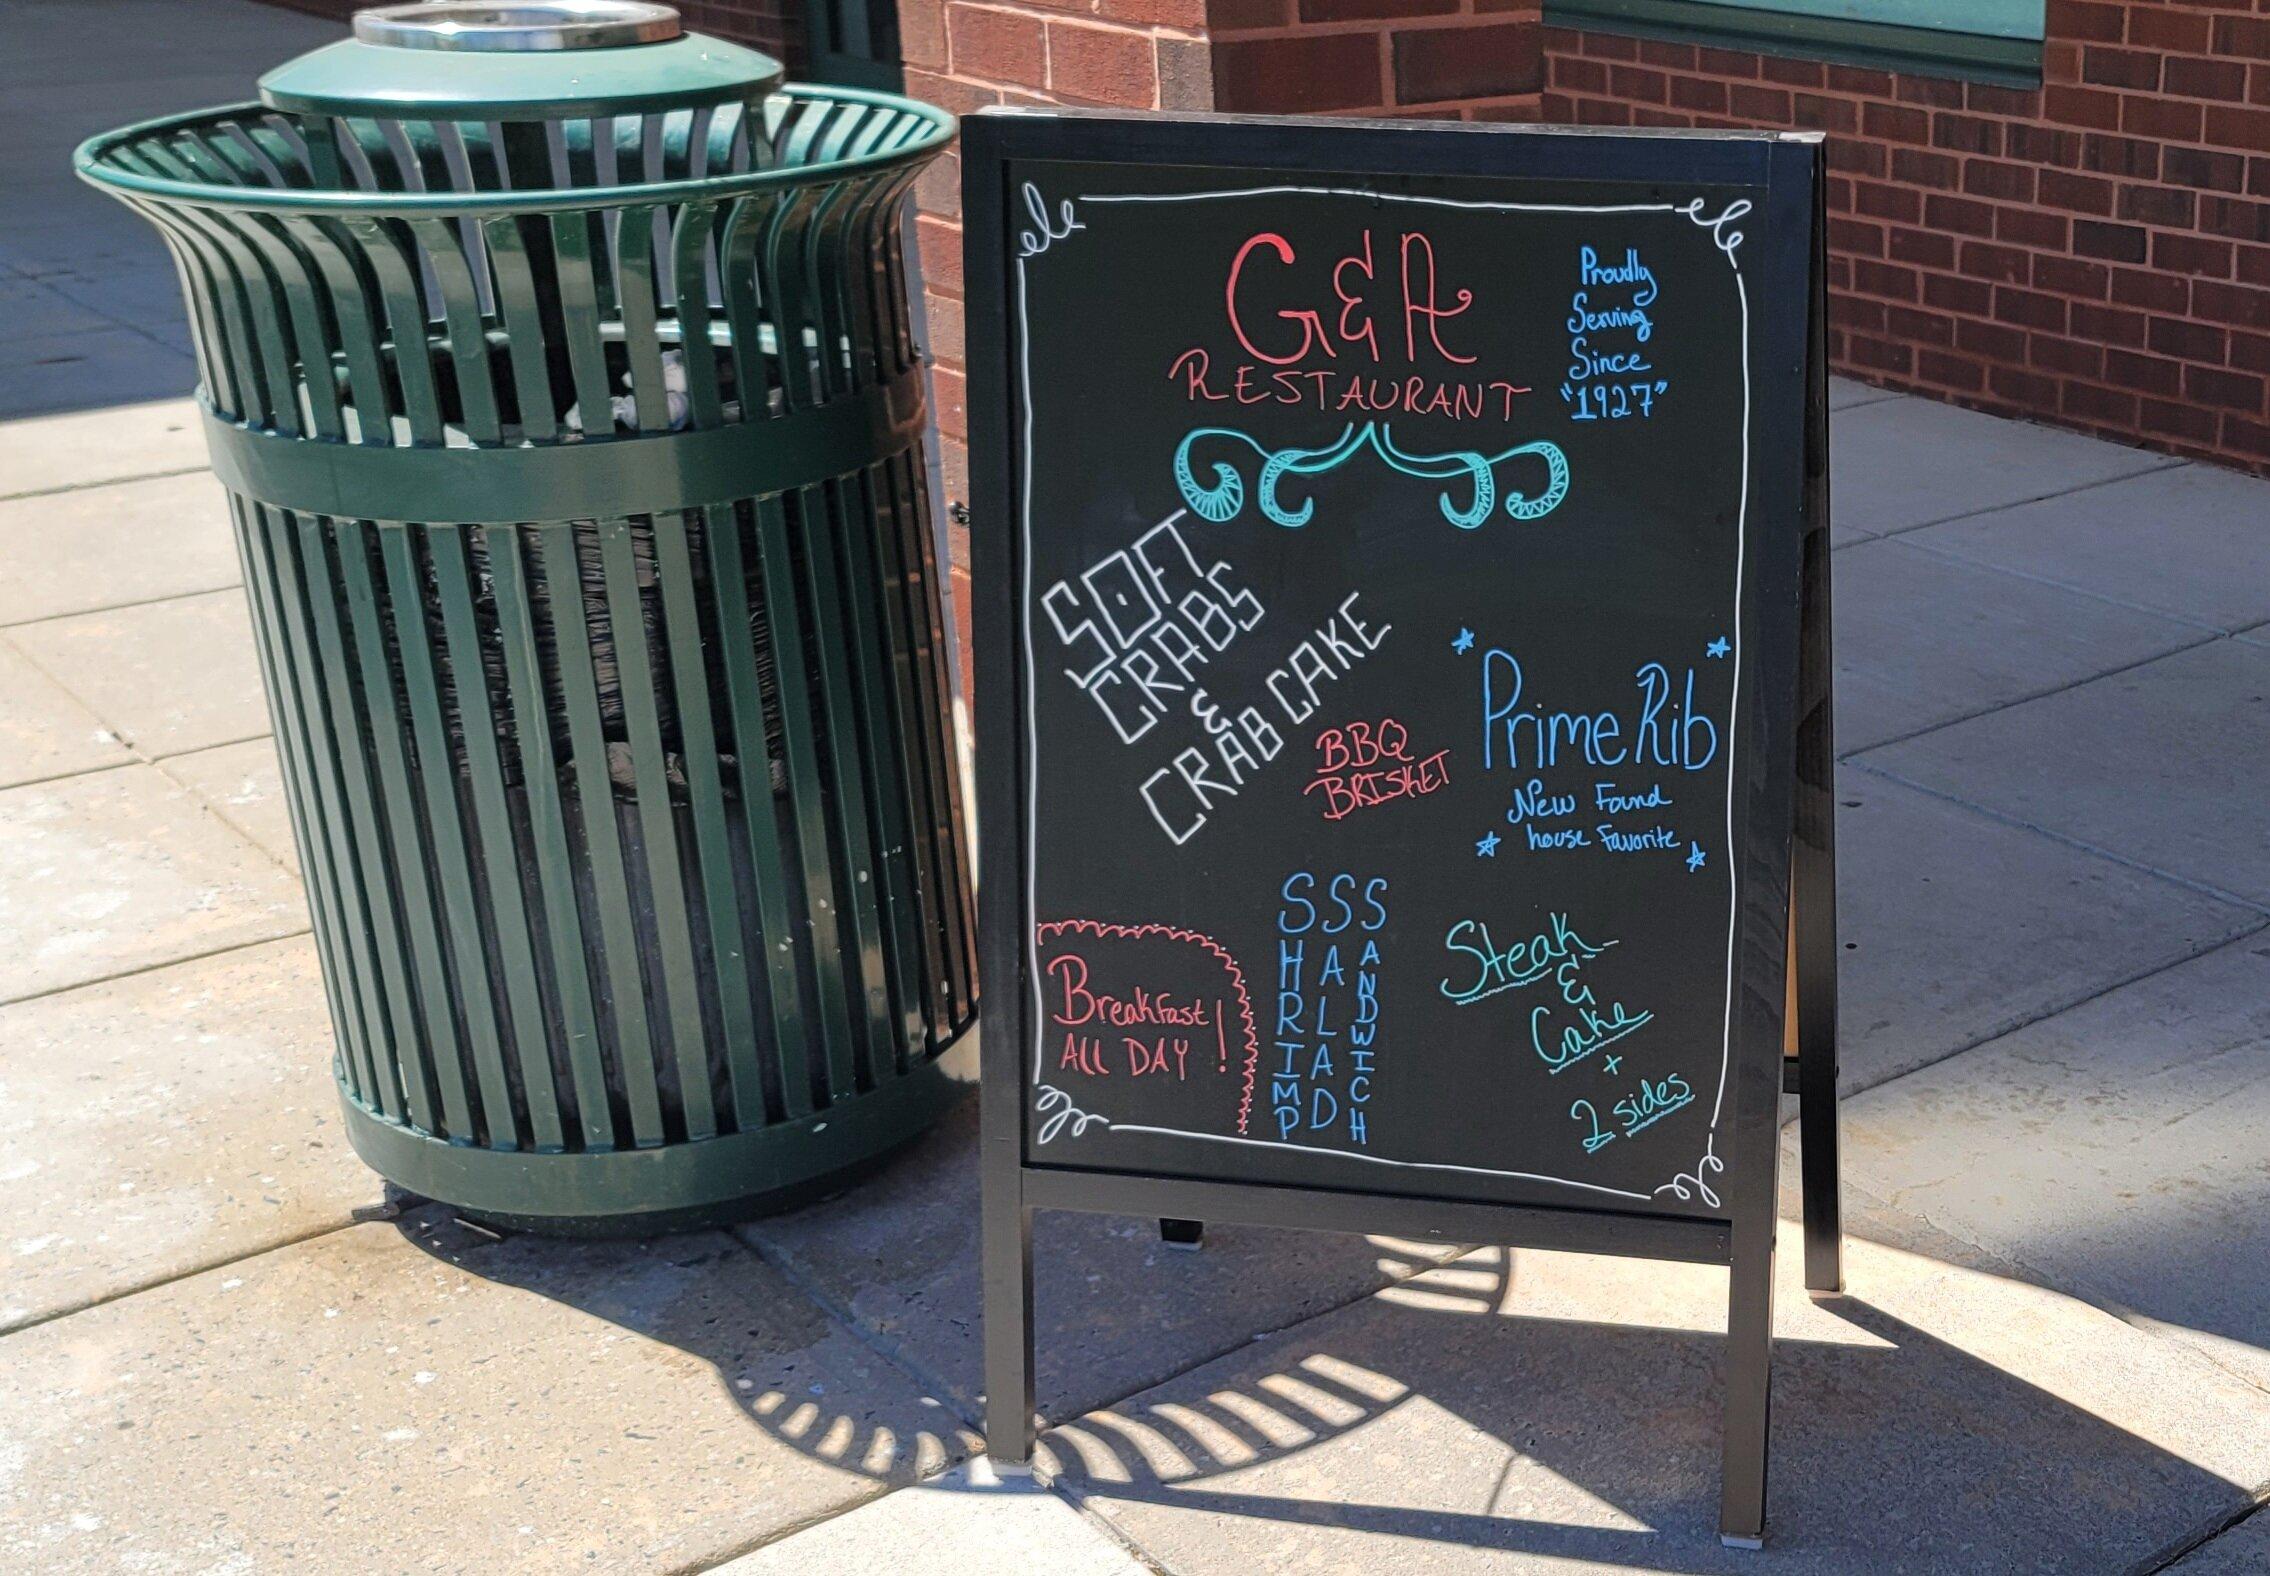 G & A
RESTAURANT
Proudly
Serving
Since
"1927"
SOFT
CRABS
&
CRAB CAKE
BBQ
BRISKET
Prime Rib
New Found
house Favorite
Breakfast!
ALL DAY
SHRIMP
SALAD
SANDWICH
Steak
&
Cake
+
2 sides